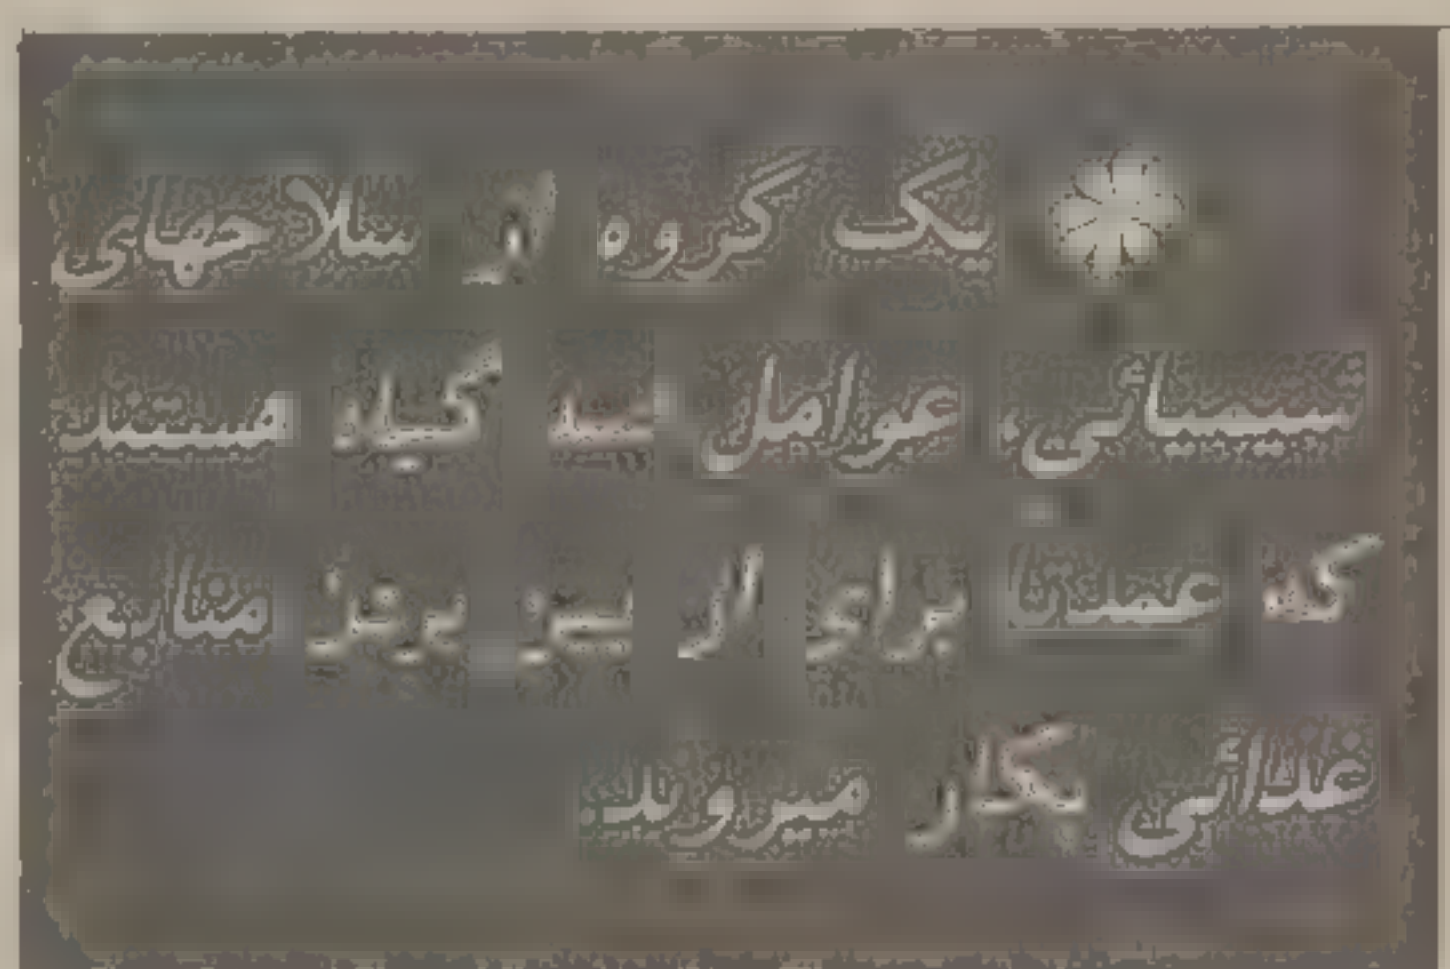 یک گروه از سلاحهای
شیمیائی، عوامل ضد گیاه هستند
که عمدتا برای از بین بردن منابع
غذائی بکار میروند.